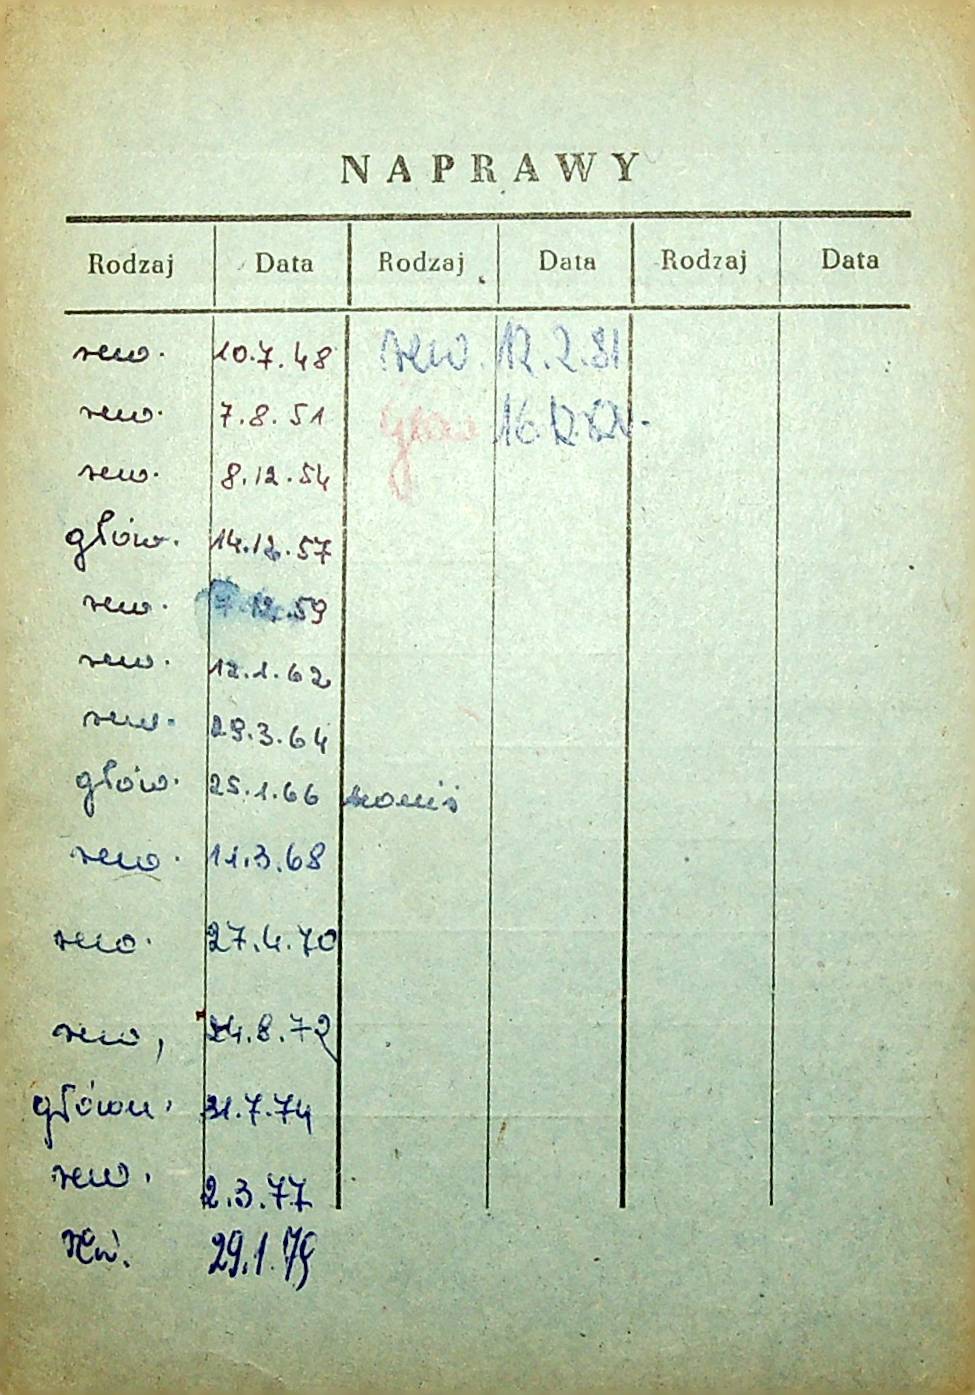 NAPRAWY
Rodzaj Data Rodzaj Data Rodzaj Data
rew. 10.7.48 rew. 12.2.81
rew. 7.8.51 głów 16.12.
rew. 8.12.54
głów. 14.12.57
rew. 7.12.59
rew. 12.1.62
rew. 29.3.64
głów. 25.1.66
rew. 11.3.68
rew. 27.4.70
rew, 24.8.72
główn. 31.7.74
rew. 2.3.77
rew. 29.1.79